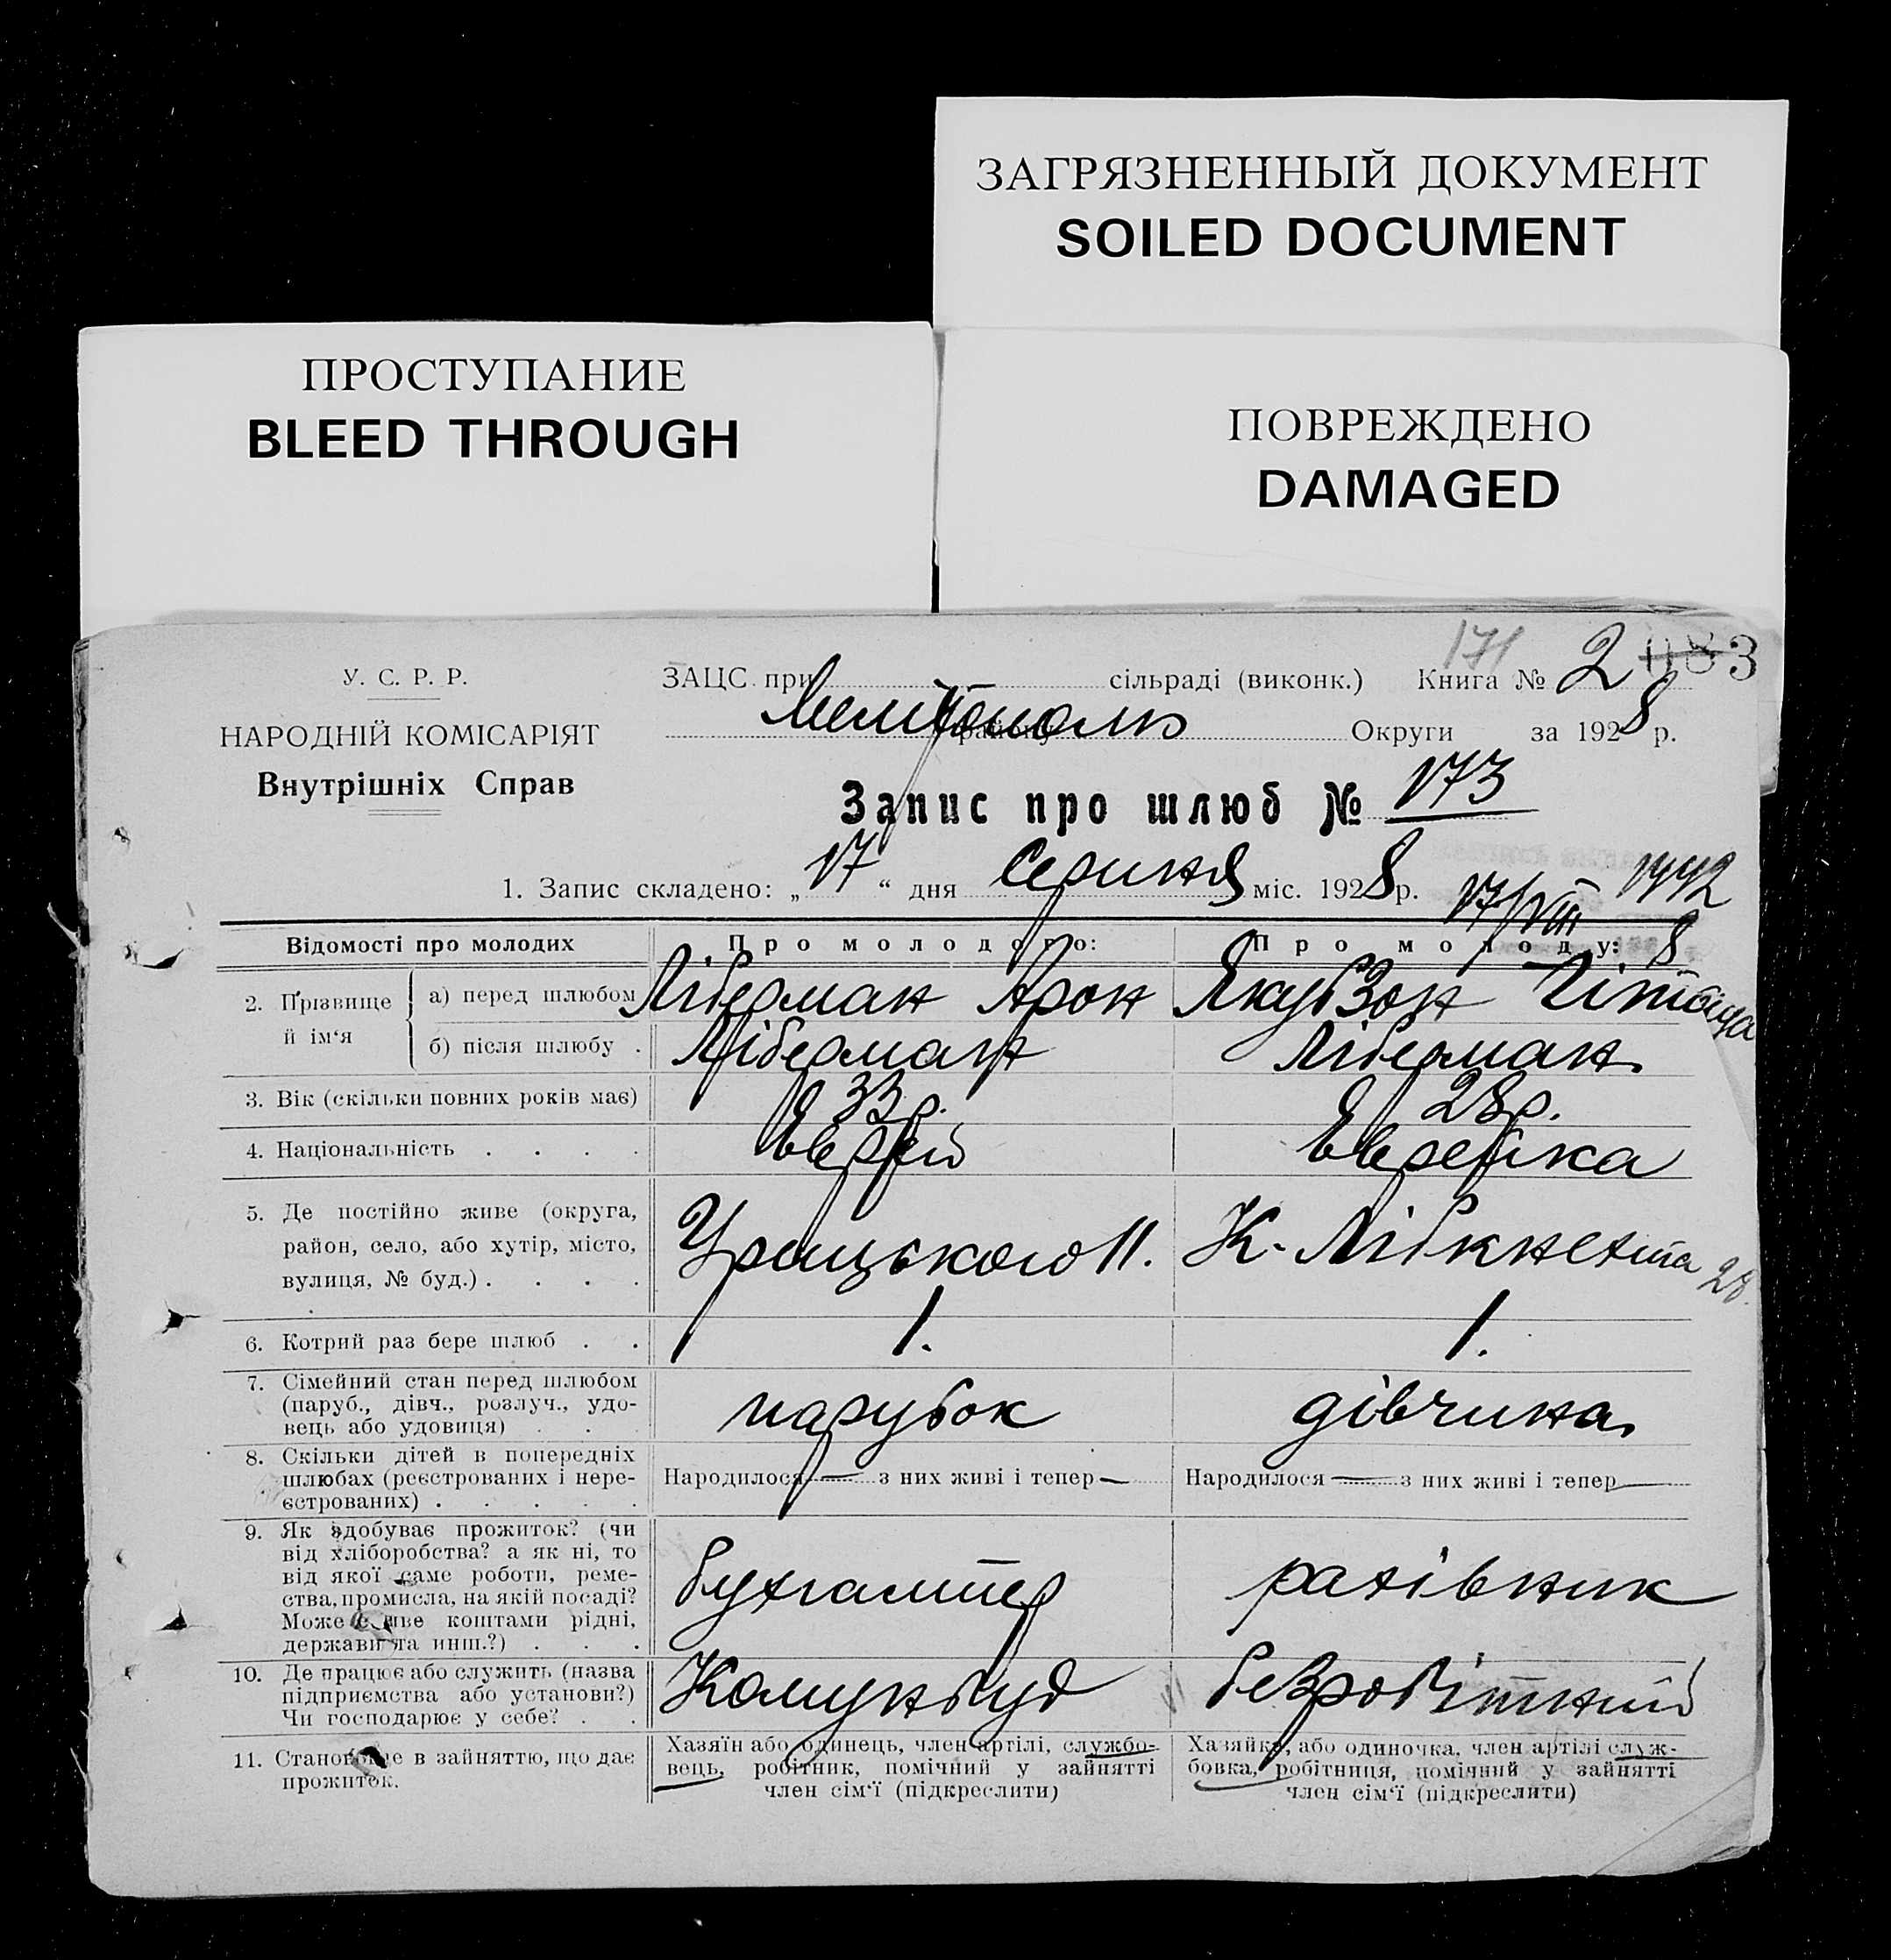 ЗАГРЯЗНЕННЫЙ ДОКУМЕНТ
SOILED DOCUMENT
ПРОСТУПАНИЕ
BLEED THROUGH
ПОВРЕЖДЕНО
DAMAGED
171
У. С. Р. Р.
НАРОДНІЙ КОМІСАРІЯТ
Внутрішніх Справ
ЗАЦС при сільраді (виконк.) Книга № 2 083
Мелітополь району Округи за 1928 р.
Запис про шлюб № 173
1. Запис складено: „17“ дня Серпня міс. 1928 р.
17/VIII 8 1442
Відомості про молодих Про молодого: Про молоду:
2. Прізвище й ім‘я
а) перед шлюбом Ліберман Арон Якубзон
б) після шлюбу . Ліберман Ліберман
3. Вік (скільки повних років має) 33 р. 28 р.
4. Національність . . . . Еврей Еврейка
5. Де постійно живе (округа,
район, село, або хутір, місто,
вулиця, № буд.) . . . .
Урицького 11. К. Лібкнехта 28.
6. Котрий раз бере шлюб . . 1. 1.
7. Сімейний стан перед шлюбом
(паруб., дівч., розлуч., удо-
вець або удовиця) . . .
парубок дівчина
8. Скільки дітей в попередніх
шлюбах (реєстрованих і нере-
єстрованих) . . . . .
Народилося — з них живі і тепер — Народилося — з них живі і тепер —
9. Як здобуває прожиток? (чи
від хліборобства? а як ні, то
від якої саме роботи, реме-
ства, промисла, на якій посаді?
Може живе коштами рідні,
держави та инш.?) . . .
бухгалтер рахівник
10. Де працює або служить (назва
підприємства або установи?)
Чи господарює у себе? . .
Комунбуд безробітний
11. Становище в зайняттю, що дає
прожиток.
Хазяїн або одинець, член артілі, службо-
вець, робітник, помічний у зайнятті
член сім‘ї (підкреслити)
Хазяйка, або одиночка, член артілі служ-
бовка, робітниця, помічний у зайнятті
член сім‘ї (підкреслити)